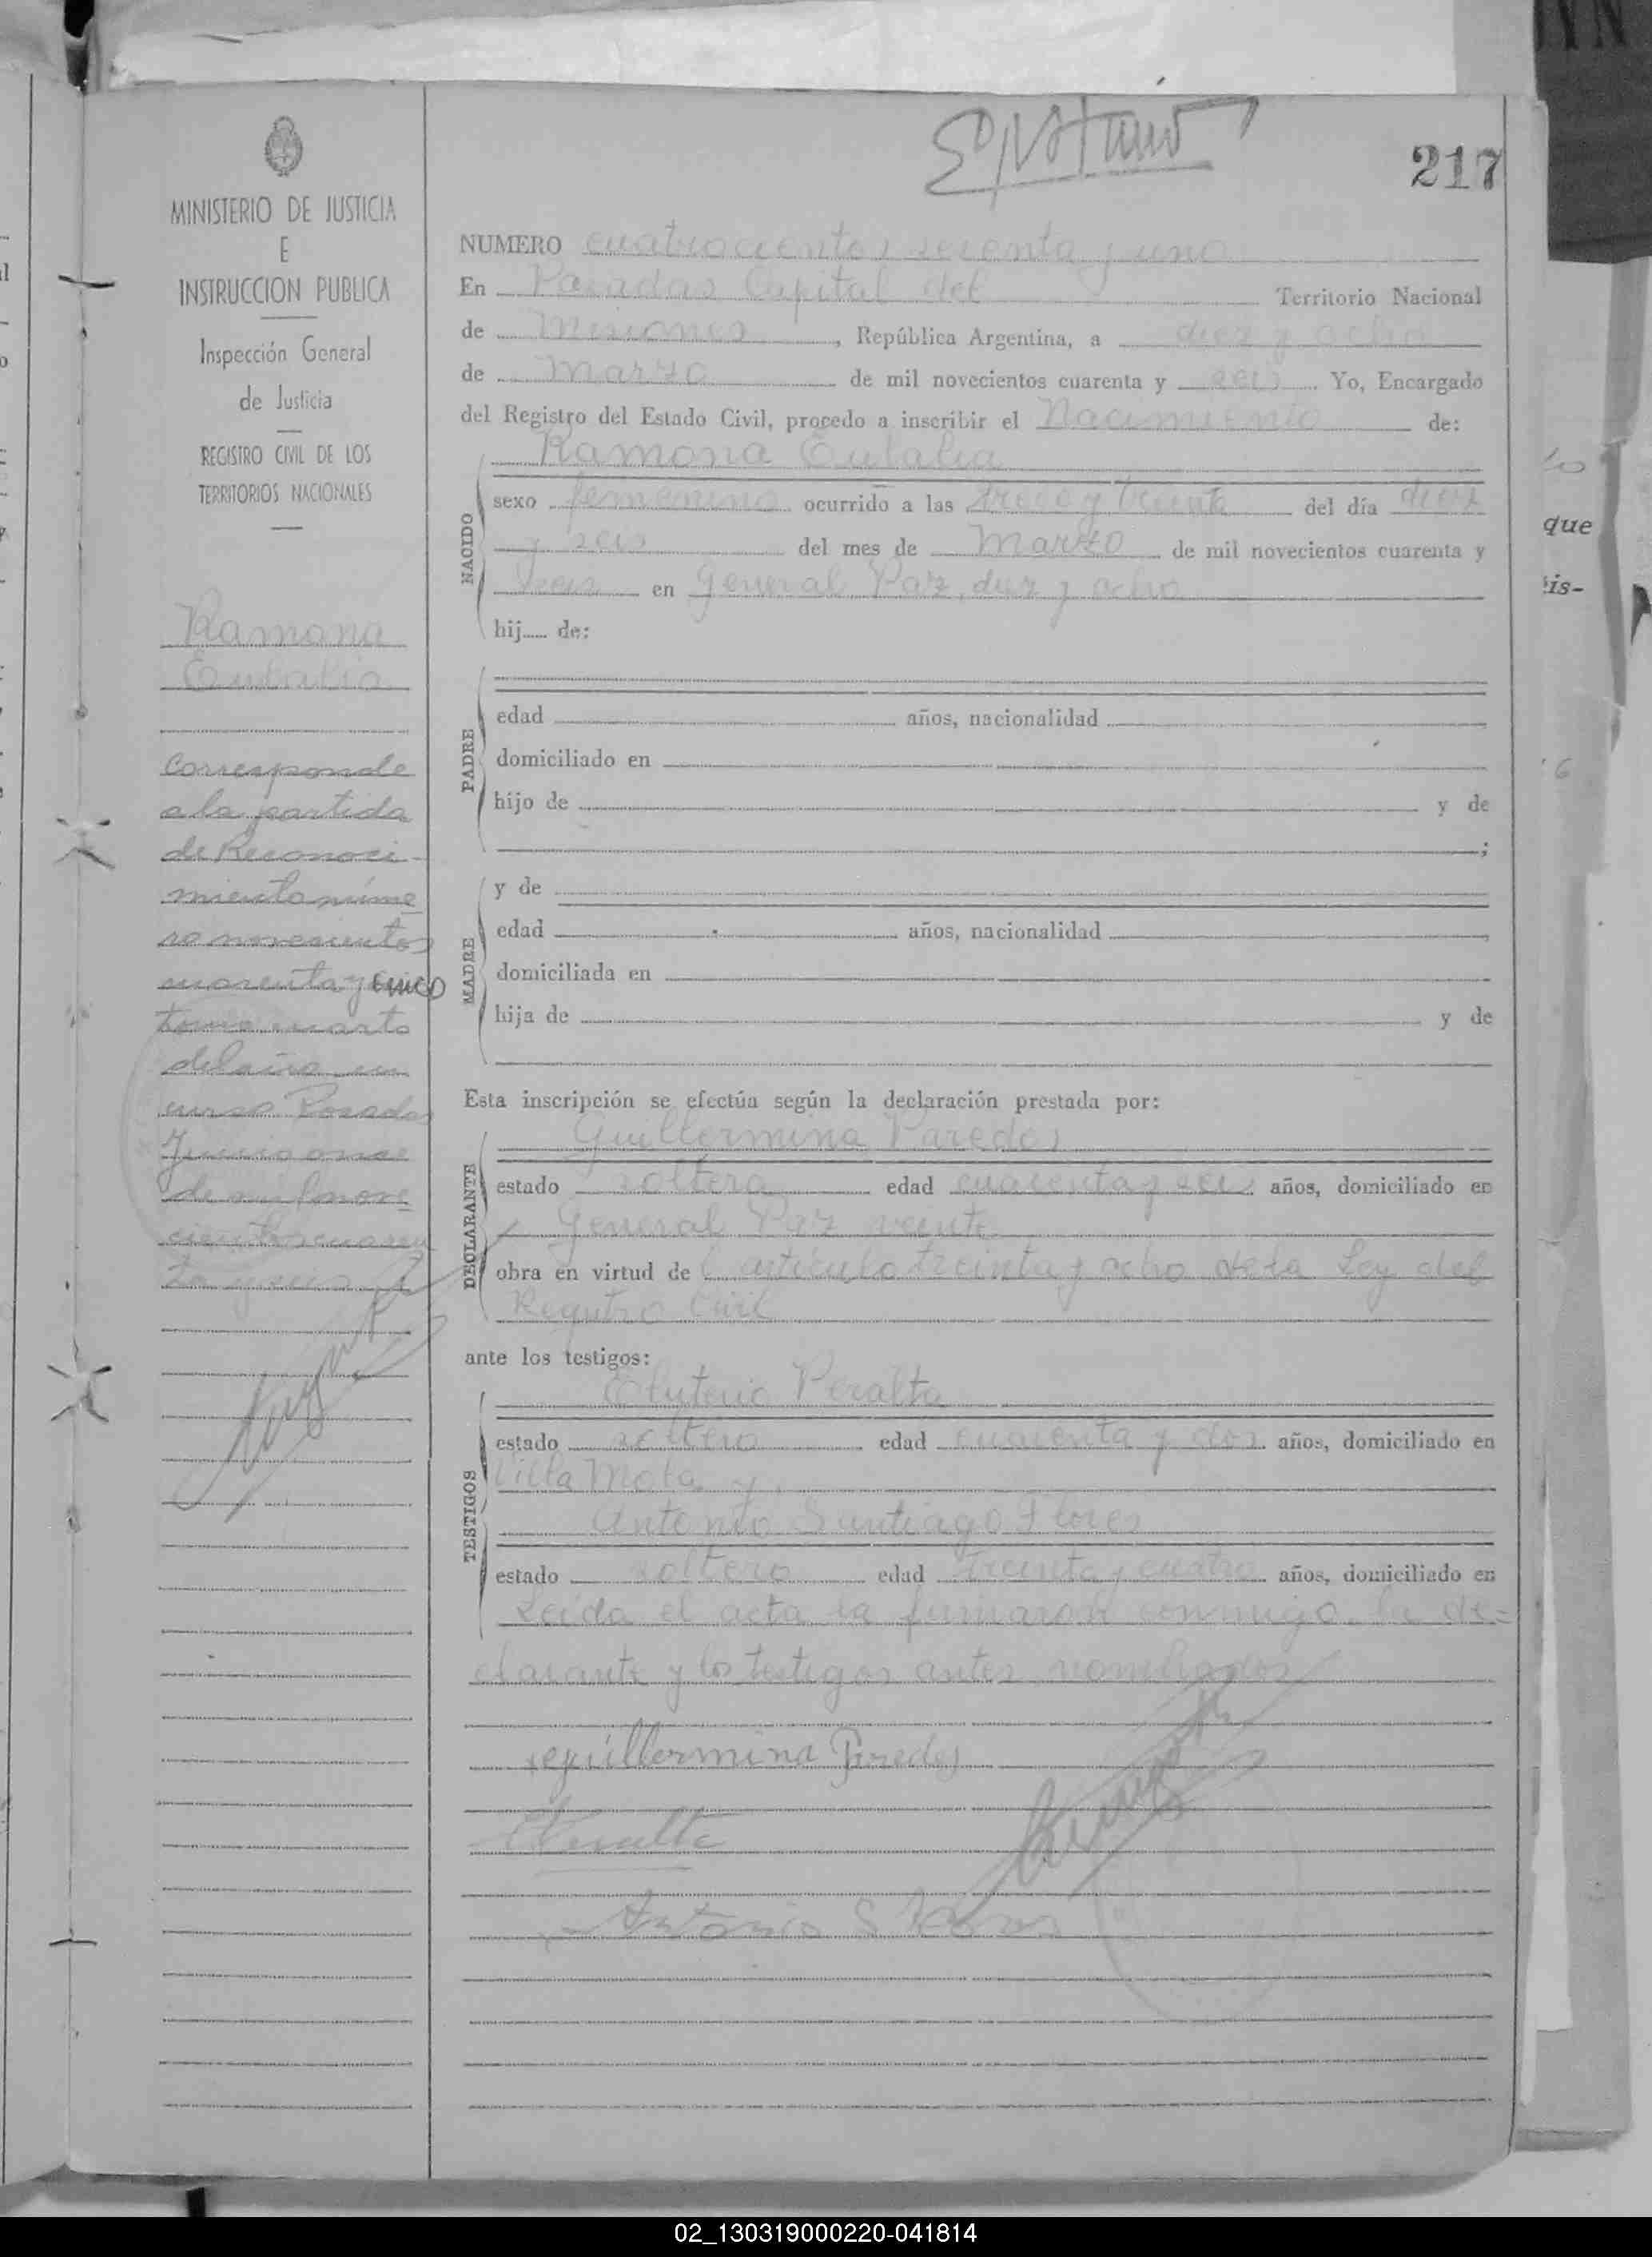 217
MINISTERIO DE JUSTICIA
E
INSTRUCCION PUBLICA
Inspección General
de Justicia
REGISTRO CIVIL DE LOS
TERRITORIOS NACIONALES
Ramona
Eulalia
Corresponde
a la partida
de Reconoci-
miento núme
ro novecientos
cuarenta y cinco
tomo cuarto
del año en
curso Posadas
Junio once
de mil nove
cientos cuaren
ta y seis
NUMERO cuatrocientos sesenta y uno
En Posadas Capital del Territorio Nacional
de Misiones, República Argentina, a diez y ocho
de Marzo de mil novecientos cuarenta y seis Yo, Encargado
del Registro del Estado Civil, procedo a inscribir el Nacimiento de:
NACIDO
Ramona Eulalia
sexo femenino ocurrido a las trece y treinta del día diez
y seis del mes de Marzo de mil novecientos cuarenta y
seis en General Paz, diez y ocho
hij..... de:
PADRE
edad años, nacionalidad
domiciliado en
hijo de y de
;
MADRE
y de
edad años, nacionalidad
domiciliada en
hija de y de
Esta inscripción se efectúa según la declaración prestada por:
DECLARANTE
Guillermina Paredes
estado soltera edad cuarenta y seis años, domiciliado en
General Paz veinte
obra en virtud de l artículo treinta y ocho de la Ley del
Registro Civil
ante los testigos:
TESTIGOS
Eleuterio Peralta
estado soltero edad cuarenta y dos años, domiciliado en
Villa Mota y
Antonio Santiago Flores
estado soltero edad treinta y cuatro años, domiciliado en
Leida el acta la firmaron conmigo, la de=
clarante y los testigos antes nombrados
guillermina Paredes
Peralta
Antonio S Flores
que
is-
02_130319000220-041814